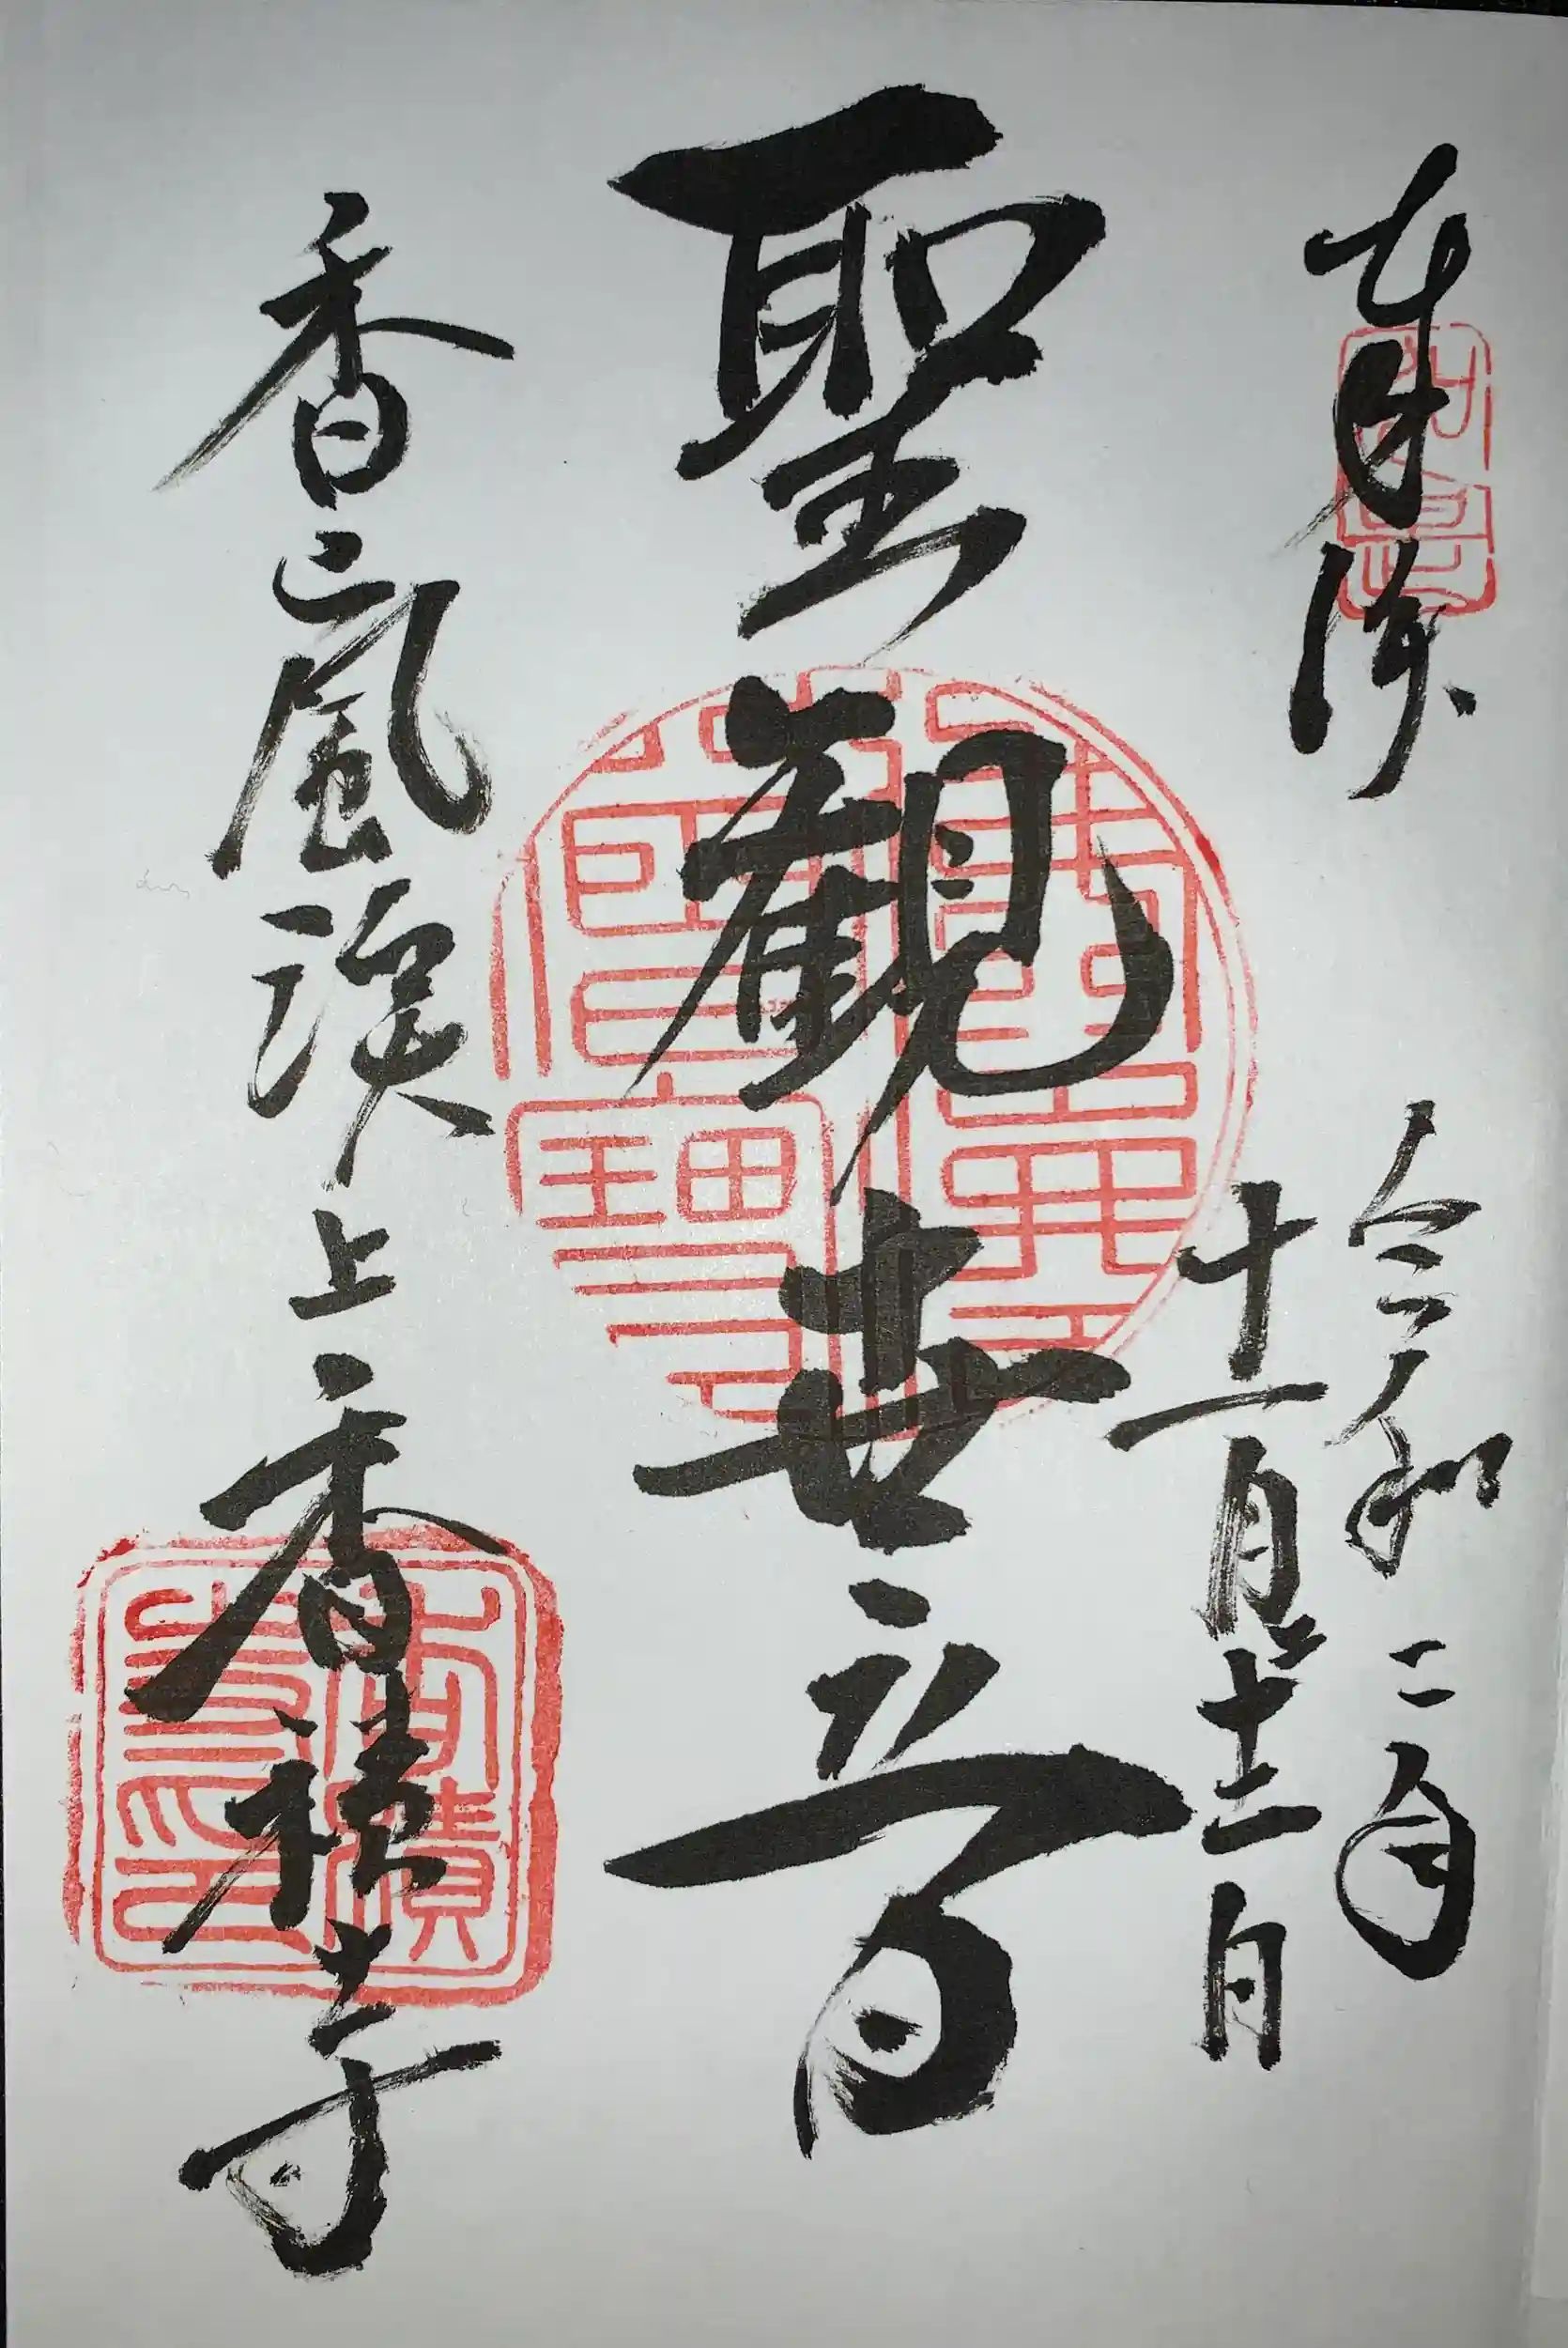 奉拝
令和二年
十一月十二日
聖観世音
香嵐渓上香積寺
香積
寺印